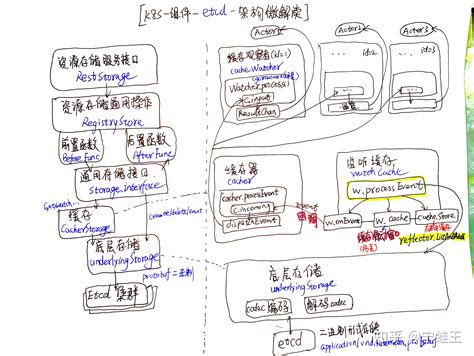 [k8s-组件-etcd-架构微解读]
资源存储服务接口
RestStorage
资源存储通用操作
RegistryStore
前置函数
Before Func
后置函数
After Func
通用存储接口
storage.interface
create/delete/count
缓存
CacherStorage
底层存储
underlyingStorage
protobuf二进制
Etcd 集群
Actor1
缓存观察者(id=1)
cacheWatcher
Watcher.process()
C.input
ResultChan
Actor2
id=2
...
Actor3
id=3
...
缓存器
cacher
cacher.processEvent
C.incoming
dispatchEvent
event
回调
监听缓存
watchCache
w.processEvent
w.onEvent
w.cache
cache.Store
底层存储
underlyingStorage
codec 编码
解码 codec
etcd
二进制形式存储
知乎 @宇蛙王